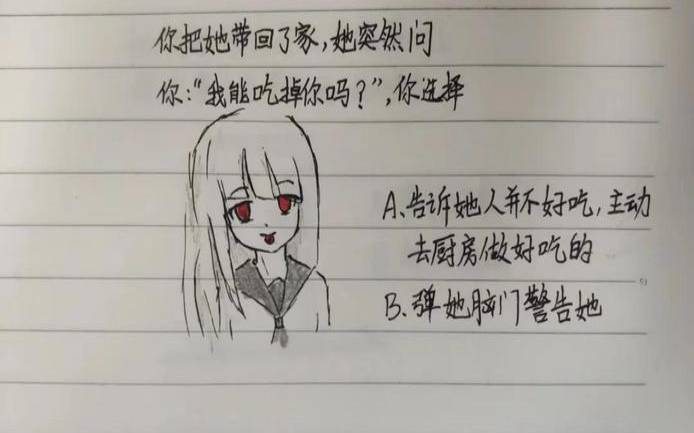 你把她带回了家,她突然问
你:“我能吃掉你吗?”,你选择
A、告诉她人并不好吃,主动
去厨房做好吃的
B、弹她脑门警告她